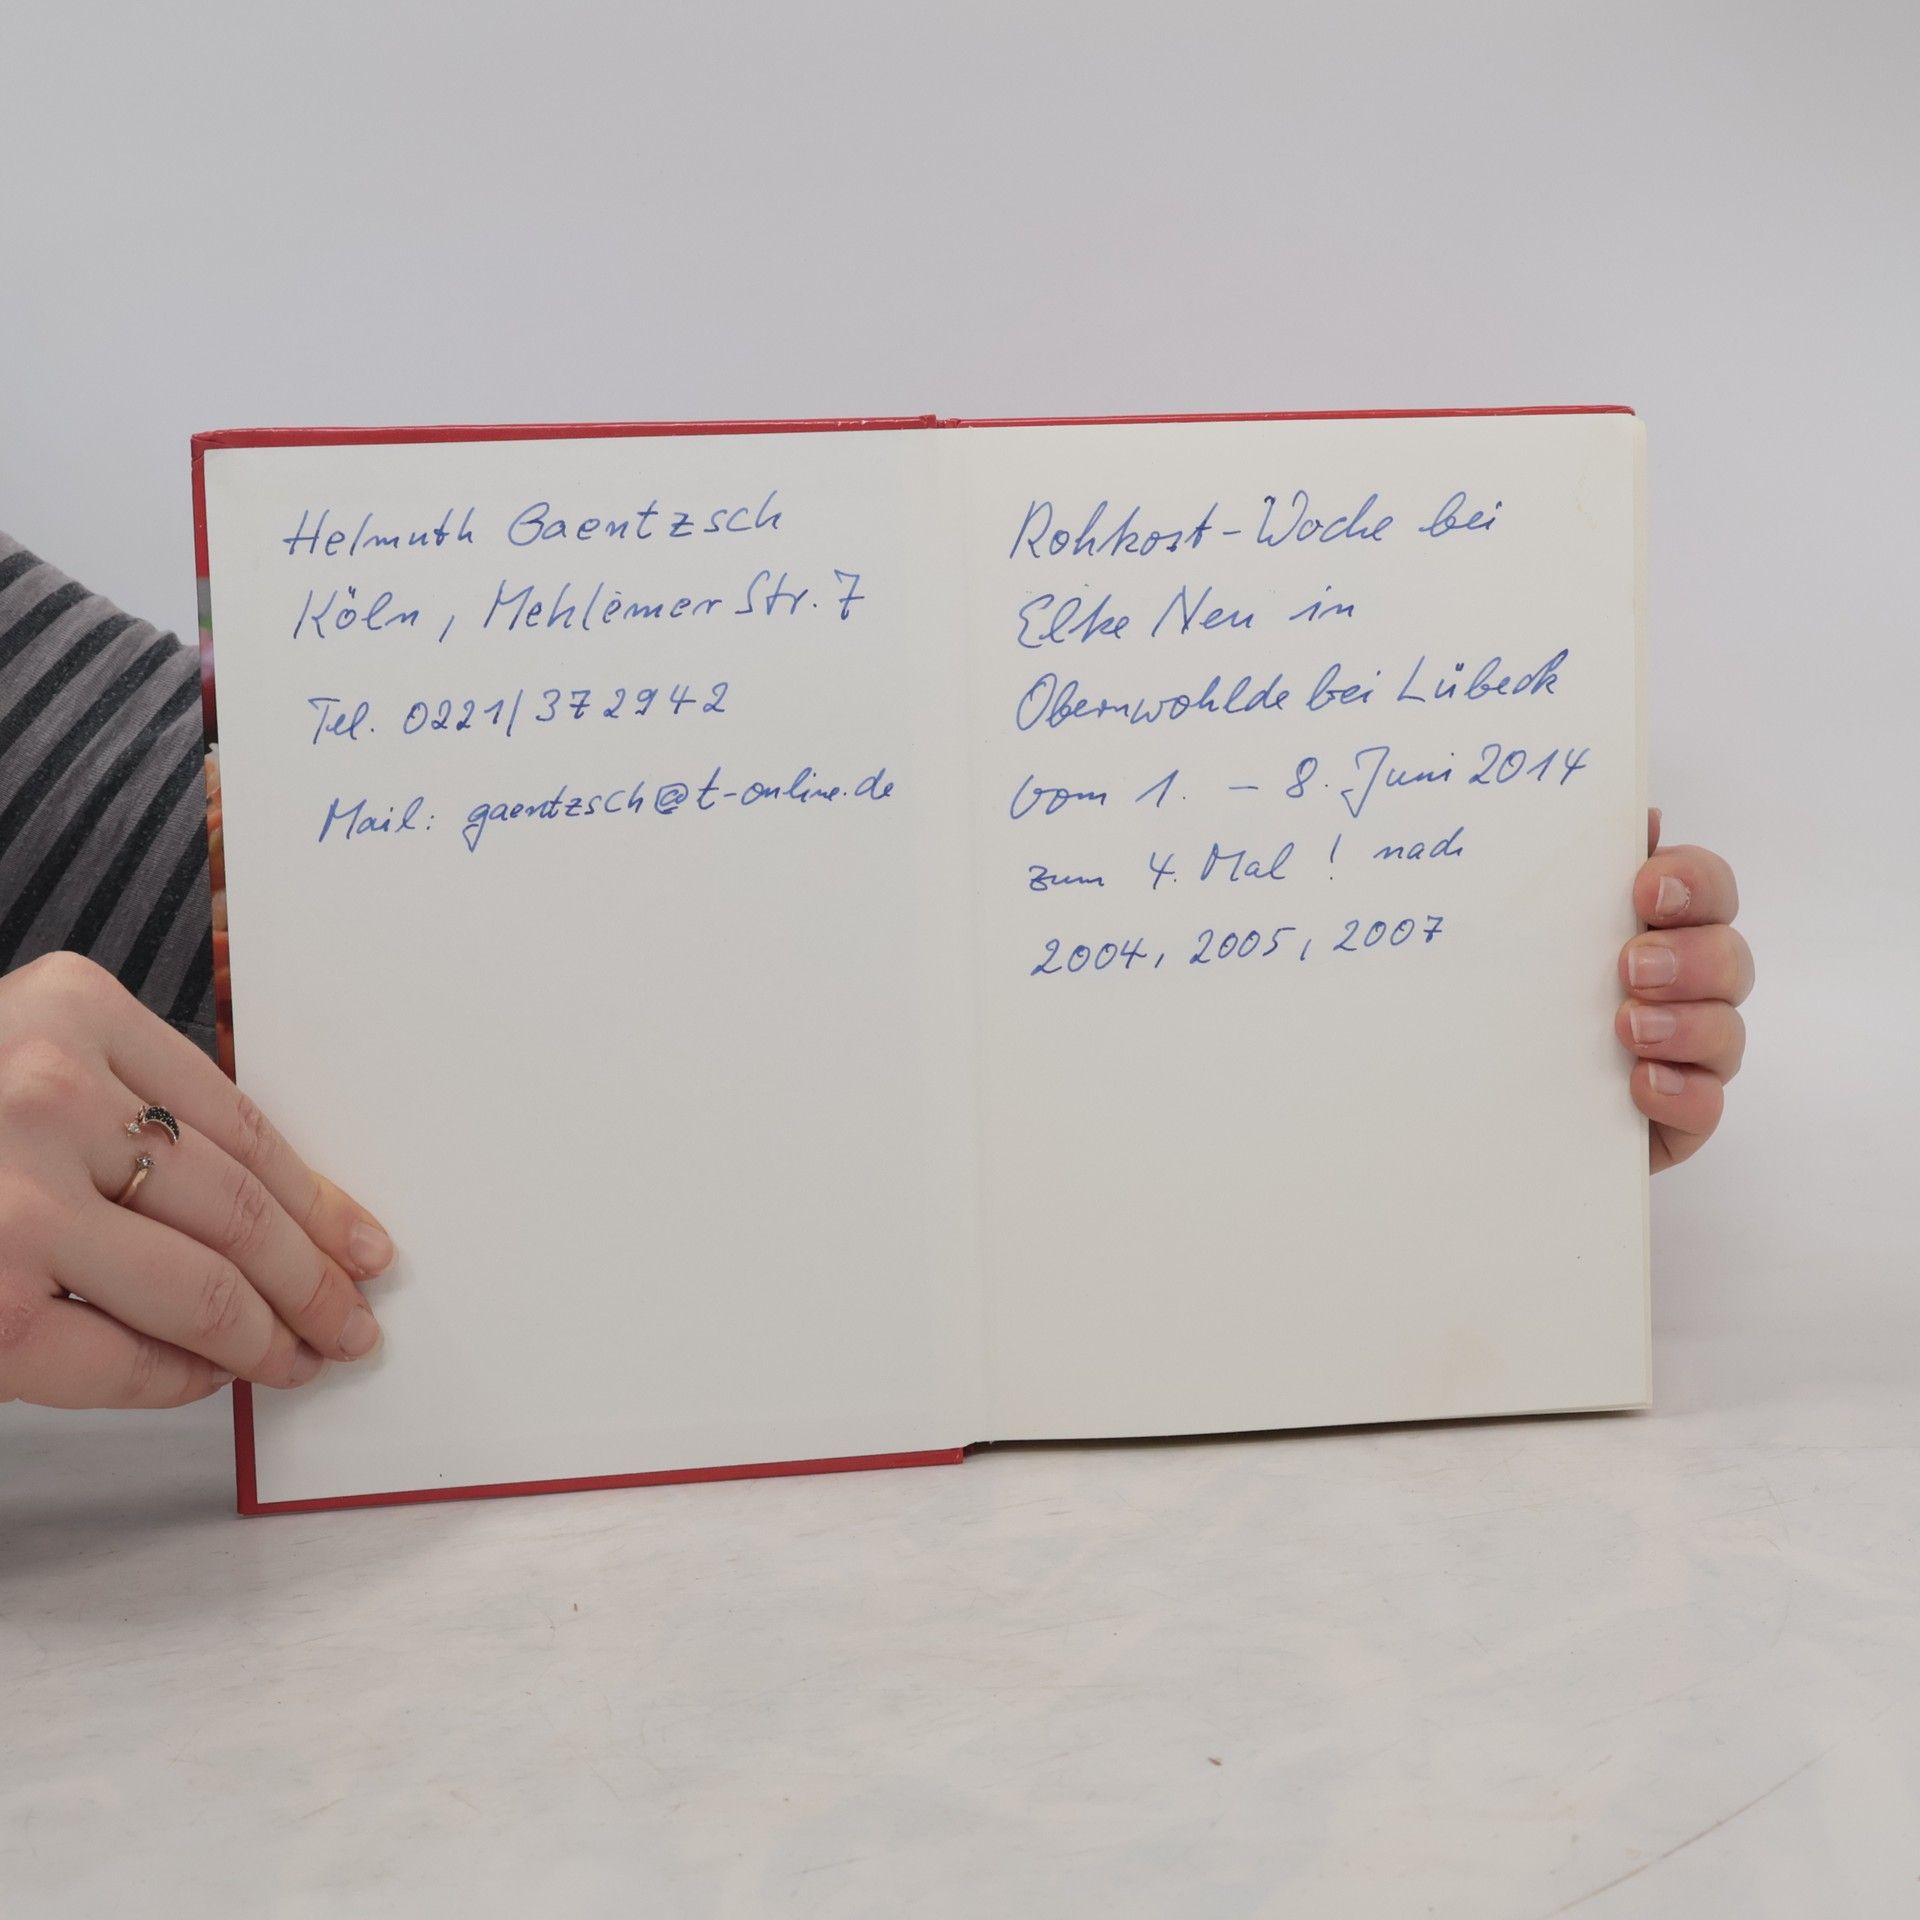 Helmuth Gaentzsch
Köln, Mehlemer Str. 7
Tel. 0221/372942
Mail: gaentzsch@t-online.de
Rohkost-Woche bei
Elke Neu in
Obernwohlde bei Lübeck
vom 1. – 8. Juni 2014
zum 4. Mal! nach
2004, 2005, 2007